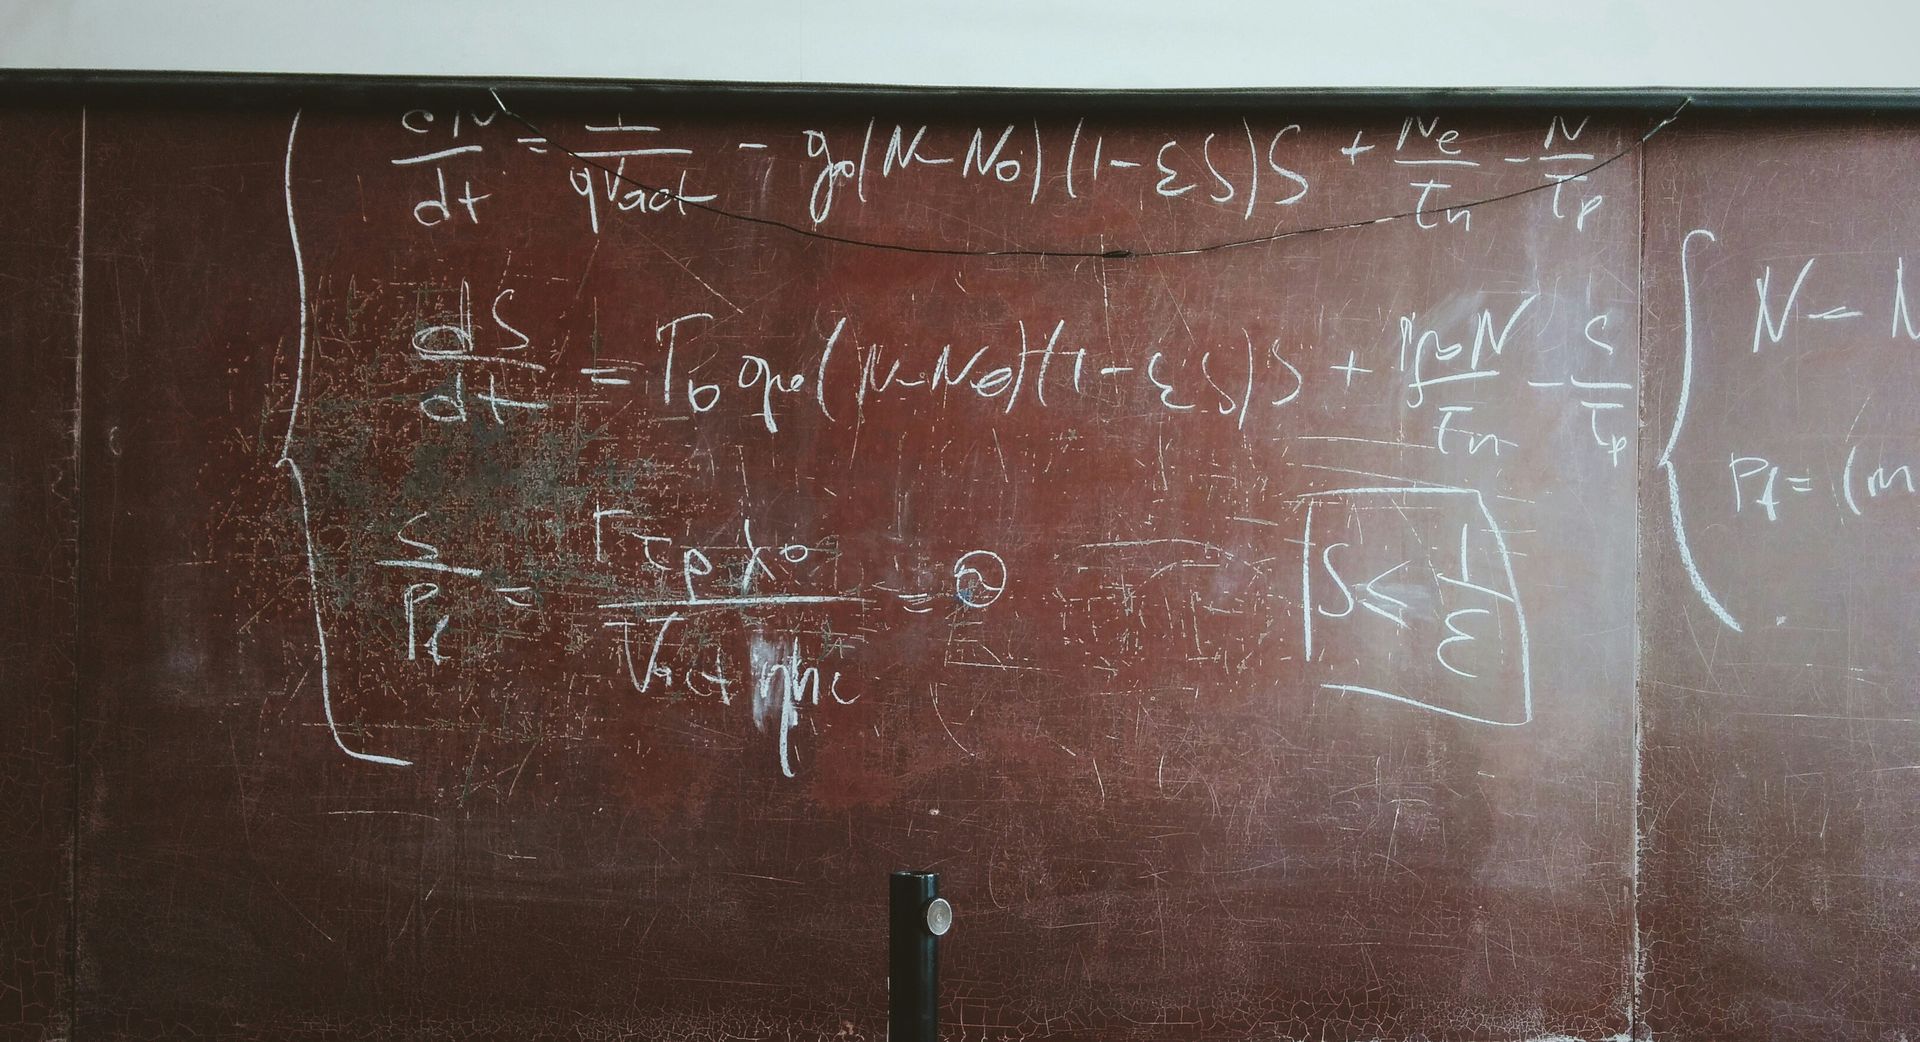 dN/dt = I/qVact - g₀(N-N₀)(1-εS)S + Ne/τn - N/τp
dS/dt = Γ₀g₀(N-N₀)(1-εS)S + N/τn - S/τp
S/Pf = Γτpλ₀/Vactηhc = 
S ≤ 1/ε
N - N
Pf = (m